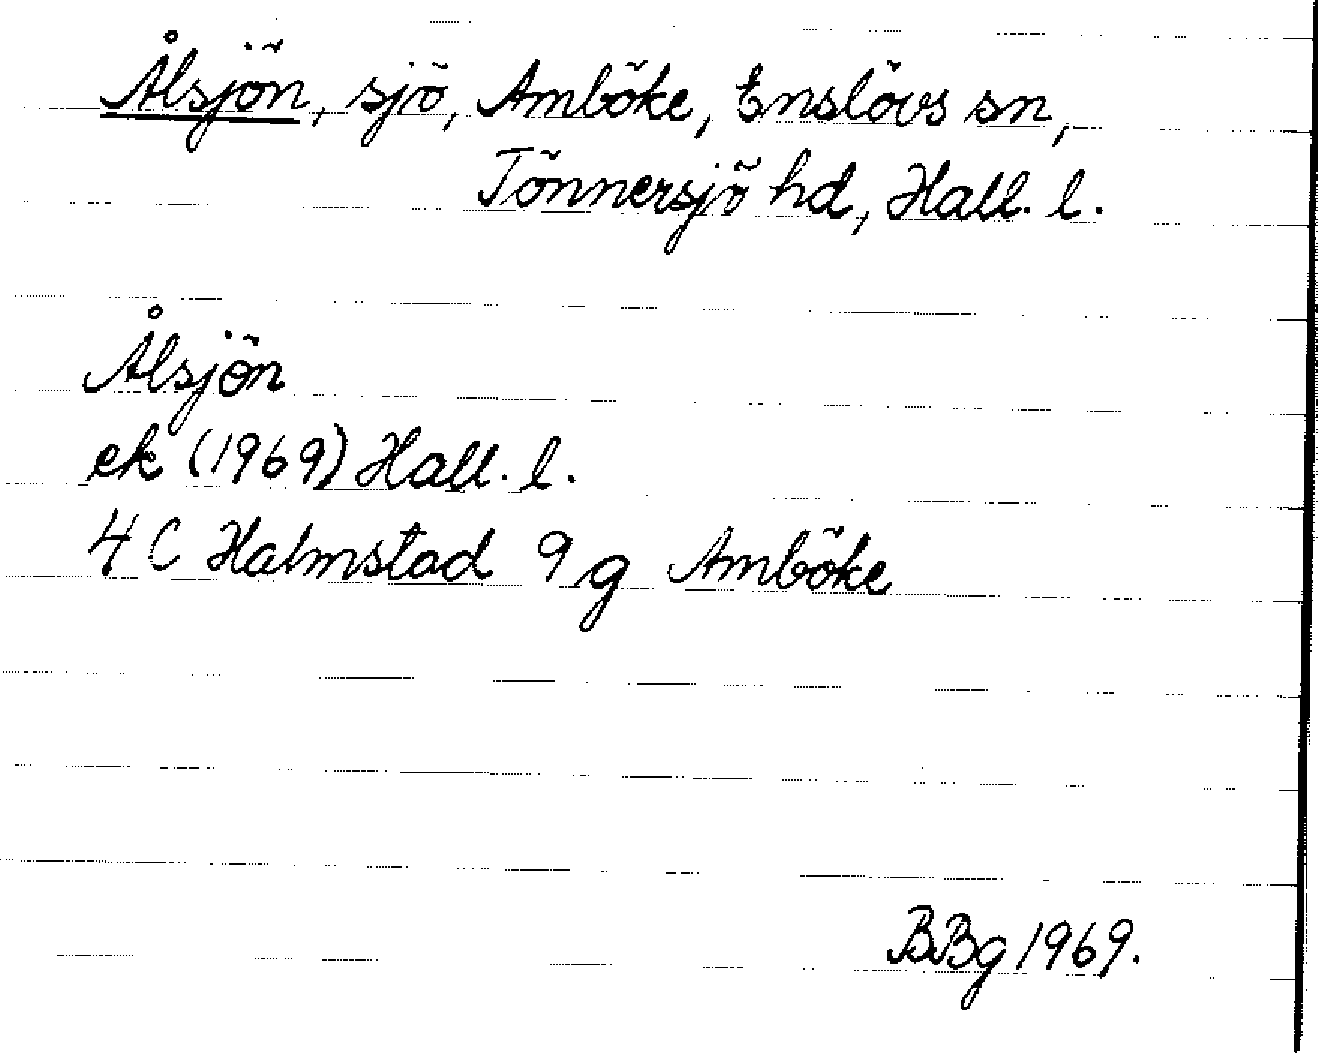 Ålsjön, sjö, Amböke, Enslövs sn,
Tönnersjö hd, Hall. l.
Ålsjön
ek (1969) Hall. l.
4 C Halmstad 9 g Amböke
BBg 1969.